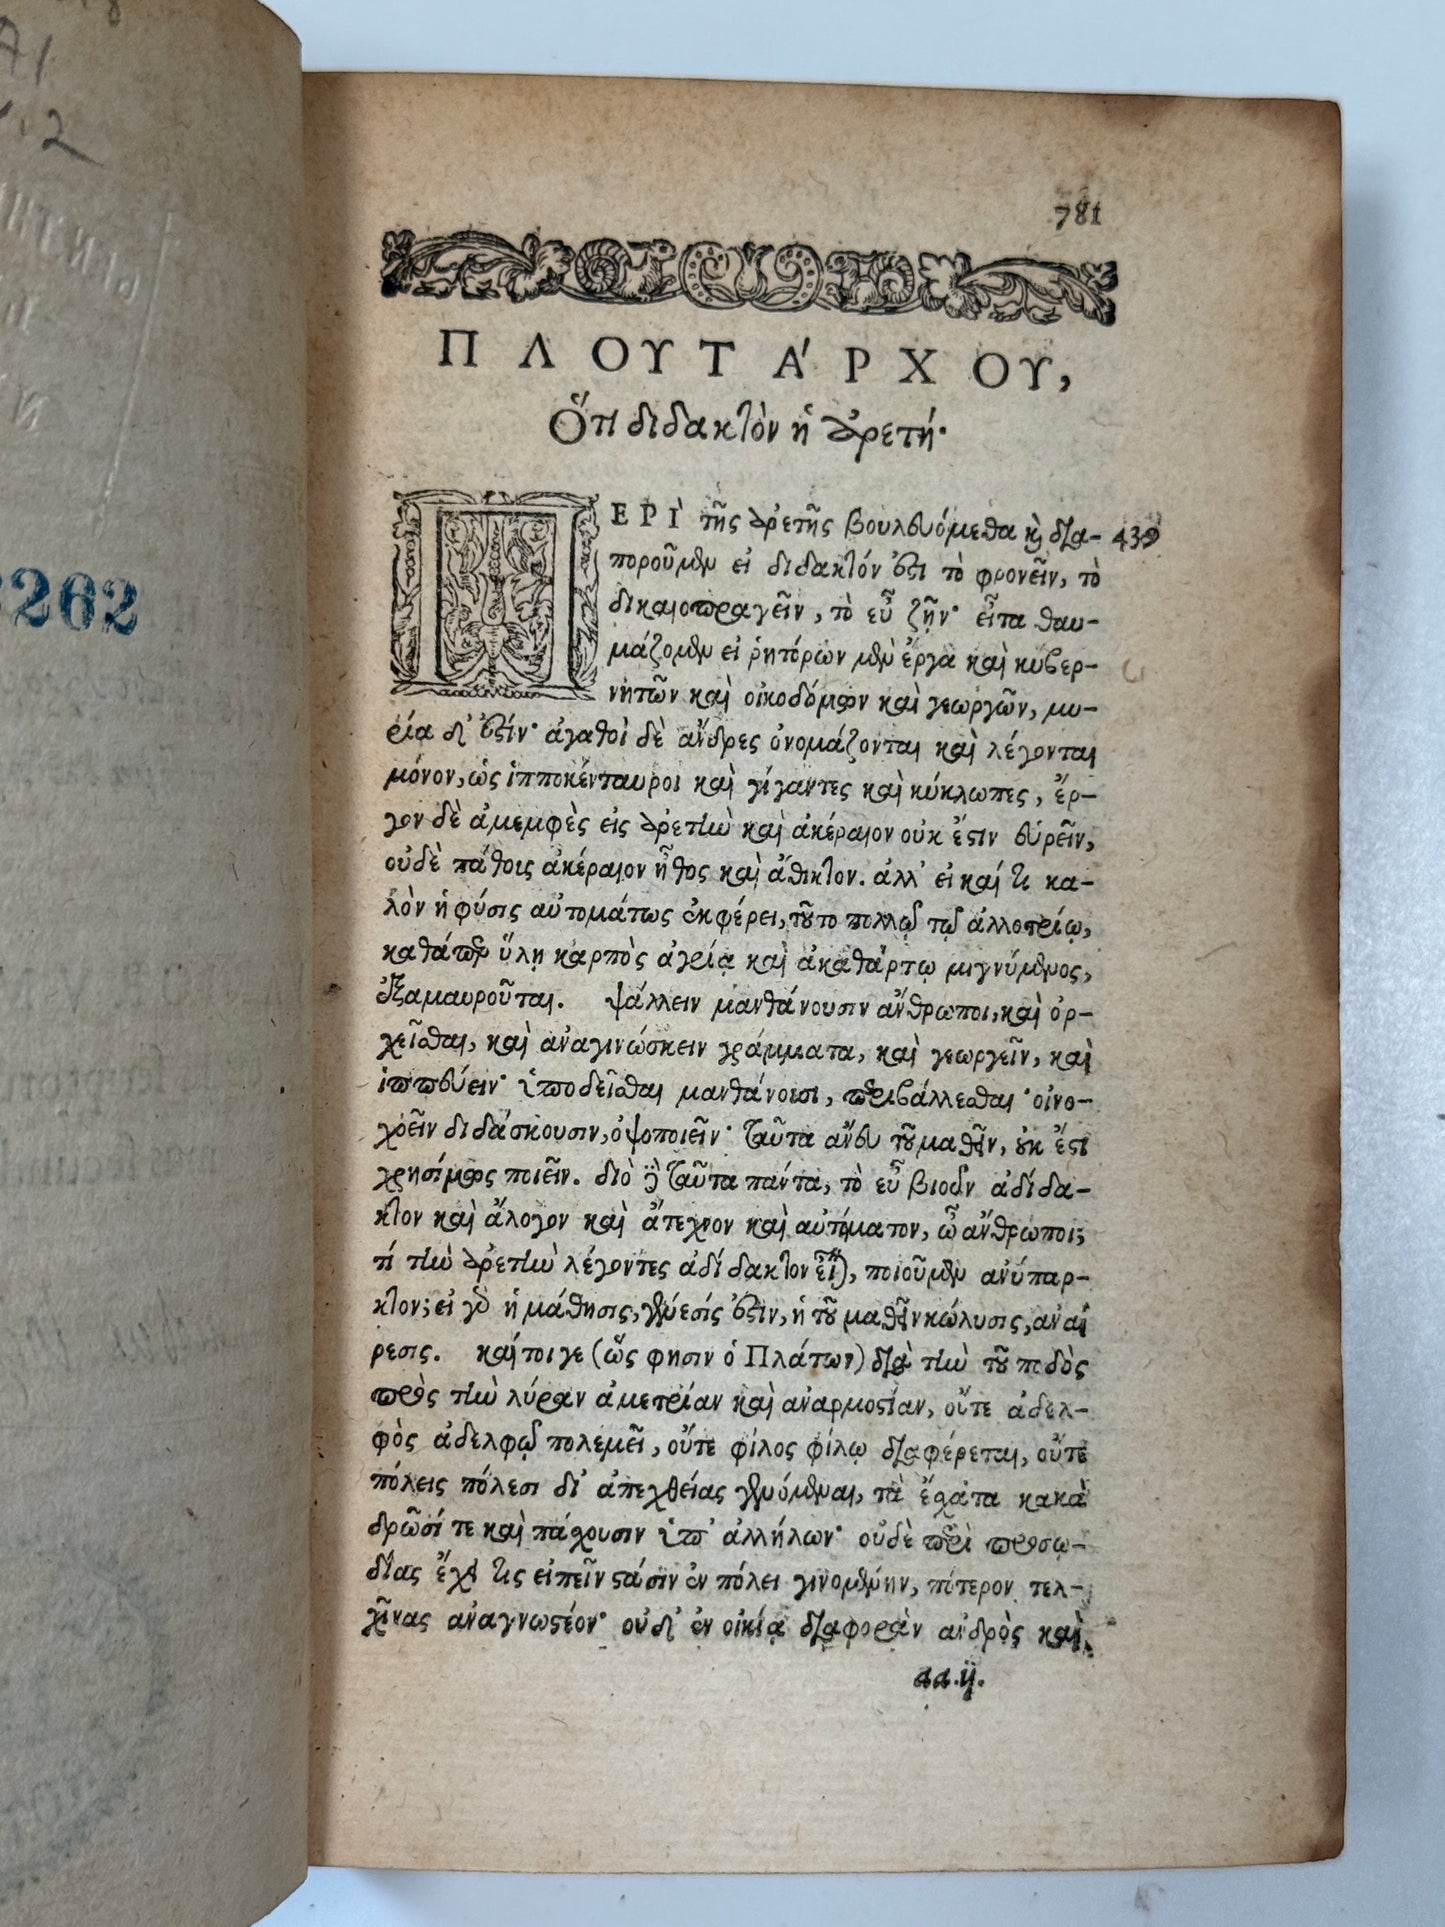 A1
v.2
3262
781
ΠΛΟΥΤΑ'ΡΧΟΥ,
Ὅτι διδακτὸν ἡ ἀρετή·
ΠΕΡΙ` τῆς ἀρετῆς βουλευόμεθα καὶ δια-
439
ποροῦμεν εἰ διδακτόν ἐστι τὸ φρονεῖν, τὸ
δικαιοπραγεῖν, τὸ εὖ ζῆν· εἶτα θαυ-
μάζομεν εἰ ῥητόρων μὲν ἔργα καὶ κυβερ-
νητῶν καὶ οἰκοδόμων καὶ γεωργῶν, μυ-
ρία δ' ἐστίν· ἀγαθοὶ δὲ ἄνδρες ὀνομάζονται καὶ λέγονται
μόνον, ὡς ἱπποκένταυροι καὶ γίγαντες καὶ κύκλωπες, ἔρ-
γον δὲ ἀμεμφὲς εἰς ἀρετὴν καὶ ἀκέραιον οὐκ ἔστιν εὑρεῖν,
οὐδὲ πάθοις ἀκέραιον ἦθος καὶ ἄθικτον. ἀλλ' εἰ καί τι κα-
λὸν ἡ φύσις αὐτομάτως ἐκφέρει, τοῦτο πολλῷ τῷ ἀλλοτρίῳ,
καθάπερ ὕλῃ καρπὸς ἀγρίᾳ καὶ ἀκαθάρτῳ μιγνύμενος,
ἐξαμαυροῦται. ψάλλειν μανθάνουσιν ἄνθρωποι, καὶ ὀρ-
χεῖσθαι, καὶ ἀναγινώσκειν γράμματα, καὶ γεωργεῖν, καὶ
ἱππεύειν· ὑποδεῖσθαι μανθάνουσι, περιβάλλεσθαι· οἰνο-
χοεῖν διδάσκουσιν, ὀψοποιεῖν· ταῦτα ἄνευ τοῦ μαθεῖν, οὐκ ἔστι
χρησίμως ποιεῖν. διὸ δὲ ταῦτα πάντα, τὸ εὖ βιοῦν ἀδίδα-
κτον καὶ ἄλογον καὶ ἄτεχνον καὶ αὐτόματον, ὦ ἄνθρωποι;
τί τὴν ἀρετὴν λέγοντες ἀδίδακτον εἶναι, ποιοῦμεν ἀνύπαρ-
κτον; εἰ γὰρ ἡ μάθησις, γένεσίς ἐστιν, ἡ τοῦ μαθεῖν κώλυσις, ἀναί
ρεσις. καίτοι γε (ὥς φησιν ὁ Πλάτων) διὰ τὴν τοῦ ποδὸς
πρὸς τὴν λύραν ἀμετρίαν καὶ ἀναρμοστίαν, οὔτε ἀδελ-
φὸς ἀδελφῷ πολεμεῖ, οὔτε φίλος φίλῳ διαφέρεται, οὔτε
πόλεις πόλεσι δι' ἀπεχθείας γενόμεναι, τὰ ἔσχατα κακὰ
δρῶσί τε καὶ πάσχουσιν ὑπ' ἀλλήλων· οὐδὲ περὶ προσῳ-
δίας ἔχει τις εἰπεῖν στάσιν ἐν πόλει γινομένην, πότερον τελ-
χῖνας ἀναγνωστέον· οὐδ' ἐν οἰκίᾳ διαφορὰν ἀνδρὸς καὶ
aa.ij.